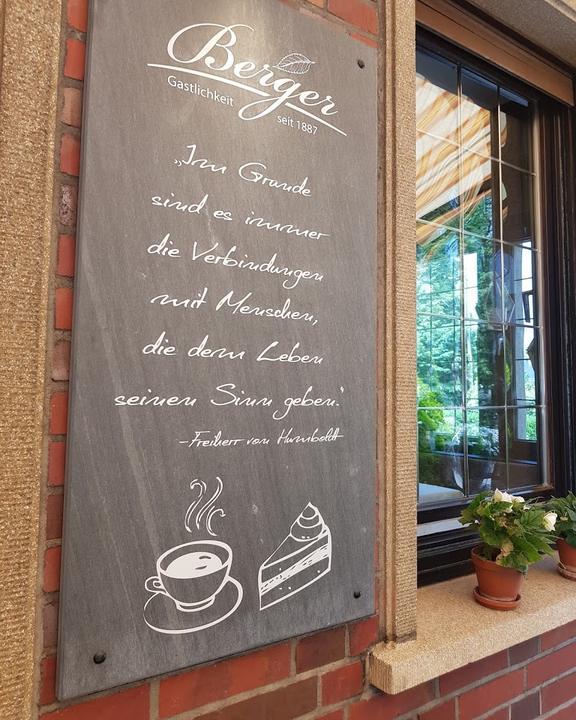 Berger
Gastlichkeit
seit 1887
„Im Grunde
sind es immer
die Verbindungen
mit Menschen,
die dem Leben
seinen Sinn geben.“
-Freiherr von Humboldt